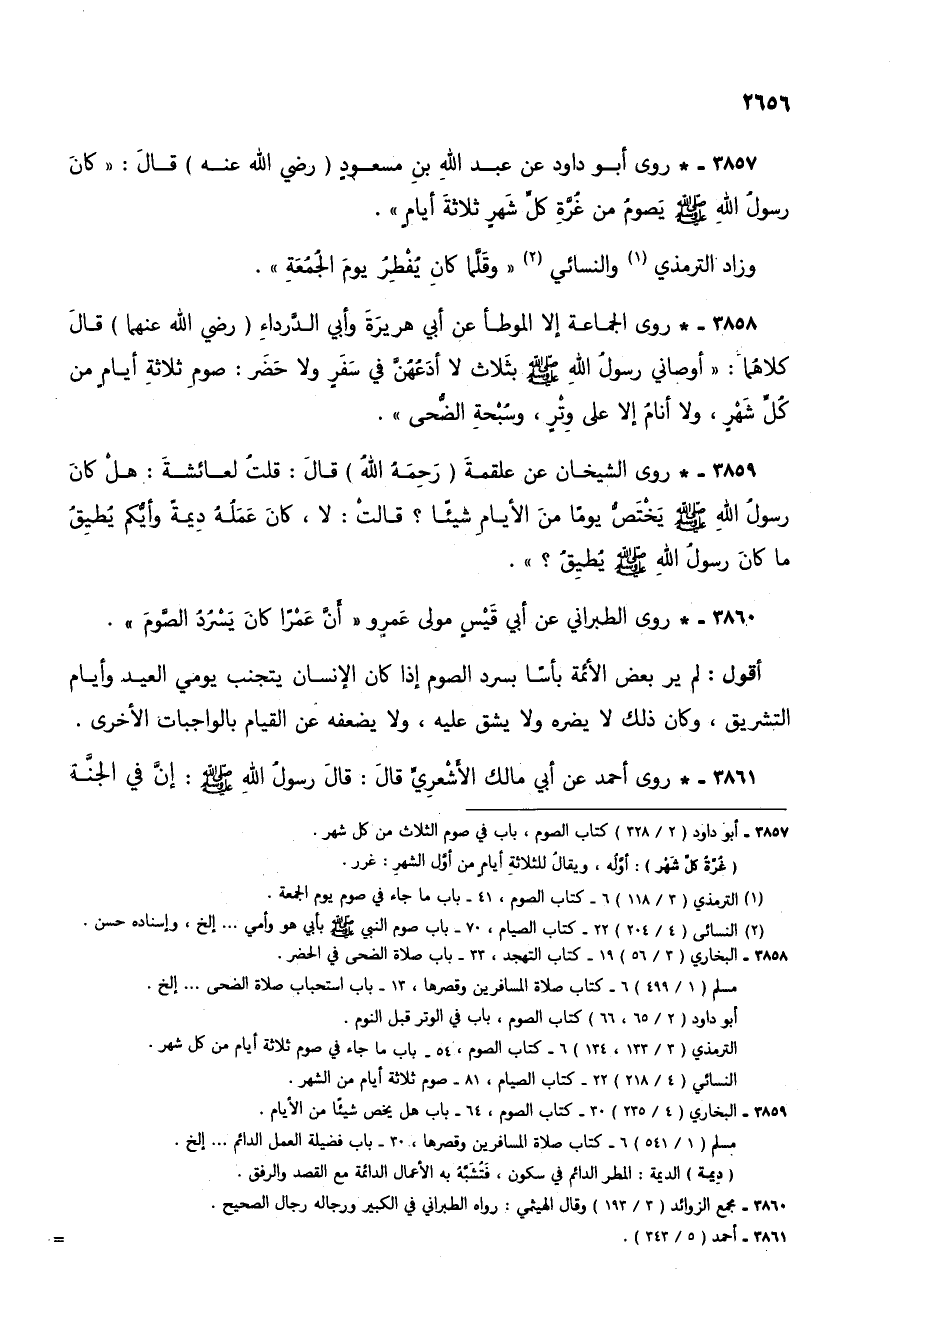 ٢٦٥٦
٣٨٥٧ ـ * روى أبـو داود عن عبـد اللهِ بنِ مسعـودٍ ( رضي الله عنـه ) قـالَ : « كانَ
رسولُ اللهِ ﷺ يَصومُ من غُرَّةِ كلِّ شَهرٍ ثلاثةَ أيامٍ » .
وزاد الترمذي (١) والنسائي (٢) « وقَلَّما كانَ يُفْطِرُ يومَ الجُمُعَةِ » .
٣٨٥٨ ـ * روى الجماعة إلا الموطأ عن أبي هريرَةَ وأبي الدَّرداءِ ( رضي الله عنهما ) قالَ
كلاهُما : « أوصاني رسولُ اللهِ ﷺ بثَلاث لا أدَعُهُنَّ في سَفَرٍ ولا حَضَر : صومِ ثلاثةِ أيـامٍ من
كُلِّ شَهْرٍ ، ولا أنامُ إلا على وِتْرٍ ، وسُبْحةِ الضُّحى » .
٣٨٥٩ ـ * روى الشيخـان عن علقمـةَ ( رَحِمَـهُ اللهُ ) قـالَ : قلتُ لعـائشـةَ : هـلْ كانَ
رسولُ اللهِ ﷺ يَخْتَصُّ يومًا منَ الأيـامِ شيئًـا ؟ قـالتْ : لا ، كانَ عَمَلُـهُ دِيمةً وأيُّكم يُطيقُ
ما كانَ رسولُ اللهِ ﷺ يُطيقُ ؟ » .
٣٨٦٠ ـ * روى الطبراني عن أبي قَيْسٍ مولى عَمرٍو « أَنَّ عَمْرًا كانَ يَسْرُدُ الصَّومَ » .
أقول : لم ير بعض الأئمة بأسًا بسرد الصوم إذا كان الإنسان يتجنب يومي العيـد وأيـام
التشريق ، وكان ذلك لا يضره ولا يشق عليه ، ولا يضعفه عن القيام بالواجبات الأخرى .
٣٨٦١ ـ * روى أحمد عن أبي مالك الأَشْعريِّ قالَ : قالَ رسولُ اللهِ ﷺ : إنَّ في الجنَّـة
٣٨٥٧ ـ أبو داود ( ٢ / ٣٢٨ ) كتاب الصوم ، باب في صوم الثلاث من كل شهر .
( غُرَّةُ كلِّ شَهْر ) : أوَّله ، ويقالُ للثلاثةِ أيام من أوَّل الشهرِ : غرر .
(١) الترمذي ( ٣ / ١١٨ ) ٦ ـ كتاب الصوم ، ٤١ ـ باب ما جاء في صوم يوم الجمعة .
(٢) النسائى ( ٤ / ٢٠٤ ) ٢٢ ـ كتاب الصيام ، ٧٠ ـ باب صوم النبي ﷺ بأبي هو وأمي ... إلخ ، وإسناده حسن .
٣٨٥٨ ـ البخاري ( ٣ / ٥٦ ) ١٩ ـ كتاب التهجد ، ٣٣ ـ باب صلاة الضحى في الحضر .
مسلم ( ١ / ٤٩٩ ) ٦ ـ كتاب صلاة المسافرين وقصرها ، ١٣ ـ باب استحباب صلاة الضحى ... إلخ .
أبو داود ( ٢ / ٦٥ ، ٦٦ ) كتاب الصوم ، باب في الوتر قبل النوم .
الترمذي ( ٣ / ١٣٣ ، ١٣٤ ) ٦ ـ كتاب الصوم ، ٥٤ ـ باب ما جاء في صوم ثلاثة أيام من كل شهر .
النسائي ( ٤ / ٢١٨ ) ٢٢ ـ كتاب الصيام ، ٨١ ـ صوم ثلاثة أيام من الشهر .
٣٨٥٩ ـ البخاري ( ٤ / ٢٣٥ ) ٣٠ ـ كتاب الصوم ، ٦٤ ـ باب هل يخص شيئًا من الأيام .
مسلم ( ١ / ٥٤١ ) ٦ ـ كتاب صلاة المسافرين وقصرها ، ٣٠ ـ باب فضيلة العمل الدائم ... إلخ .
( دِيمة ) الديمة : المطر الدائم في سكون ، فَتُشبَّهُ به الأعمال الدائمة مع القصد والرفق .
٣٨٦٠ ـ مجمع الزوائد ( ٣ / ١٩٣ ) وقال الهيثمي : رواه الطبراني في الكبير ورجاله رجال الصحيح .
٣٨٦١ ـ أحمد ( ٥ / ٣٤٣ ) .
=